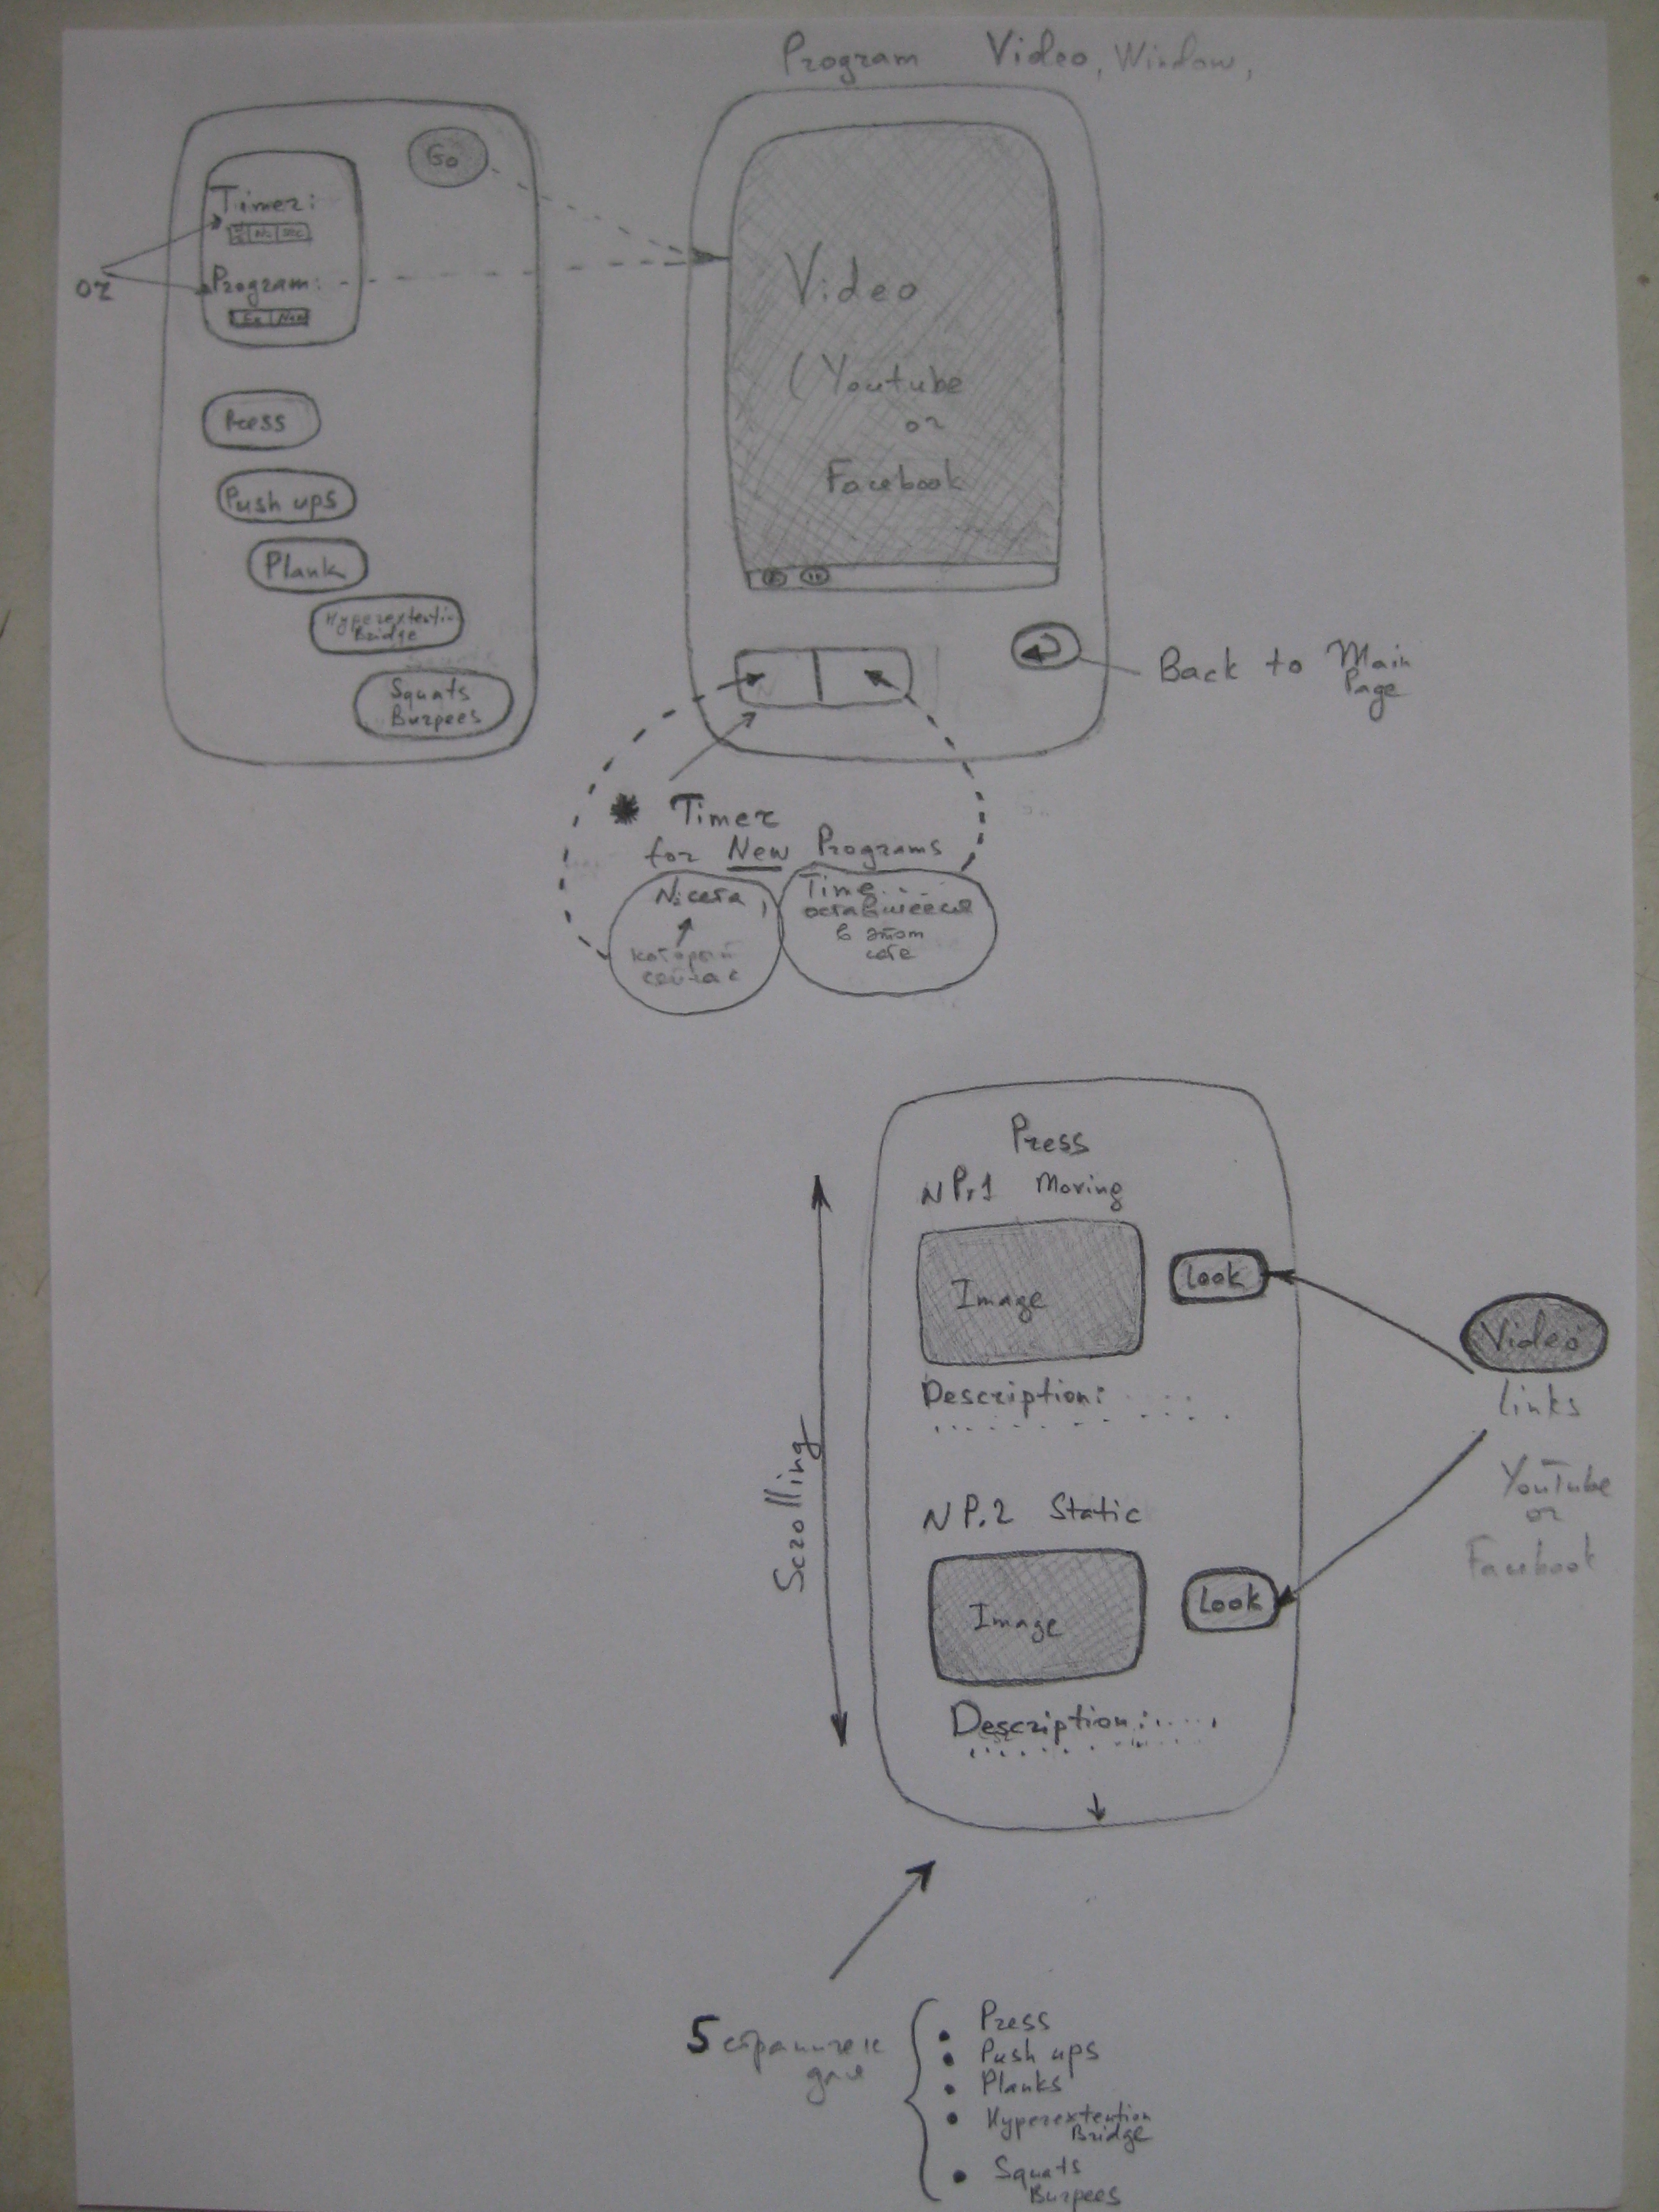 Program Video, Window,
Go
Timer:
Sec
or
Program:
Ex New
Press
Push ups
Plank
Bridge
Squats
Burpees
Video
(Youtube
or
Facebook
Back to Main
Page
Timer
for New Programs
N: сета,
который
сейчас
Time.....
оставшееся
в этом
сете
Press
N Pr.1 Moving
Image
Look
Description:
N P.2 Static
Image
Look
Description:
Scrolling
Video
links
YouTube
or
Facebook
5 страничек
для
Press
Push ups
Planks
Hyperextention
Bridge
Squats
Burpees